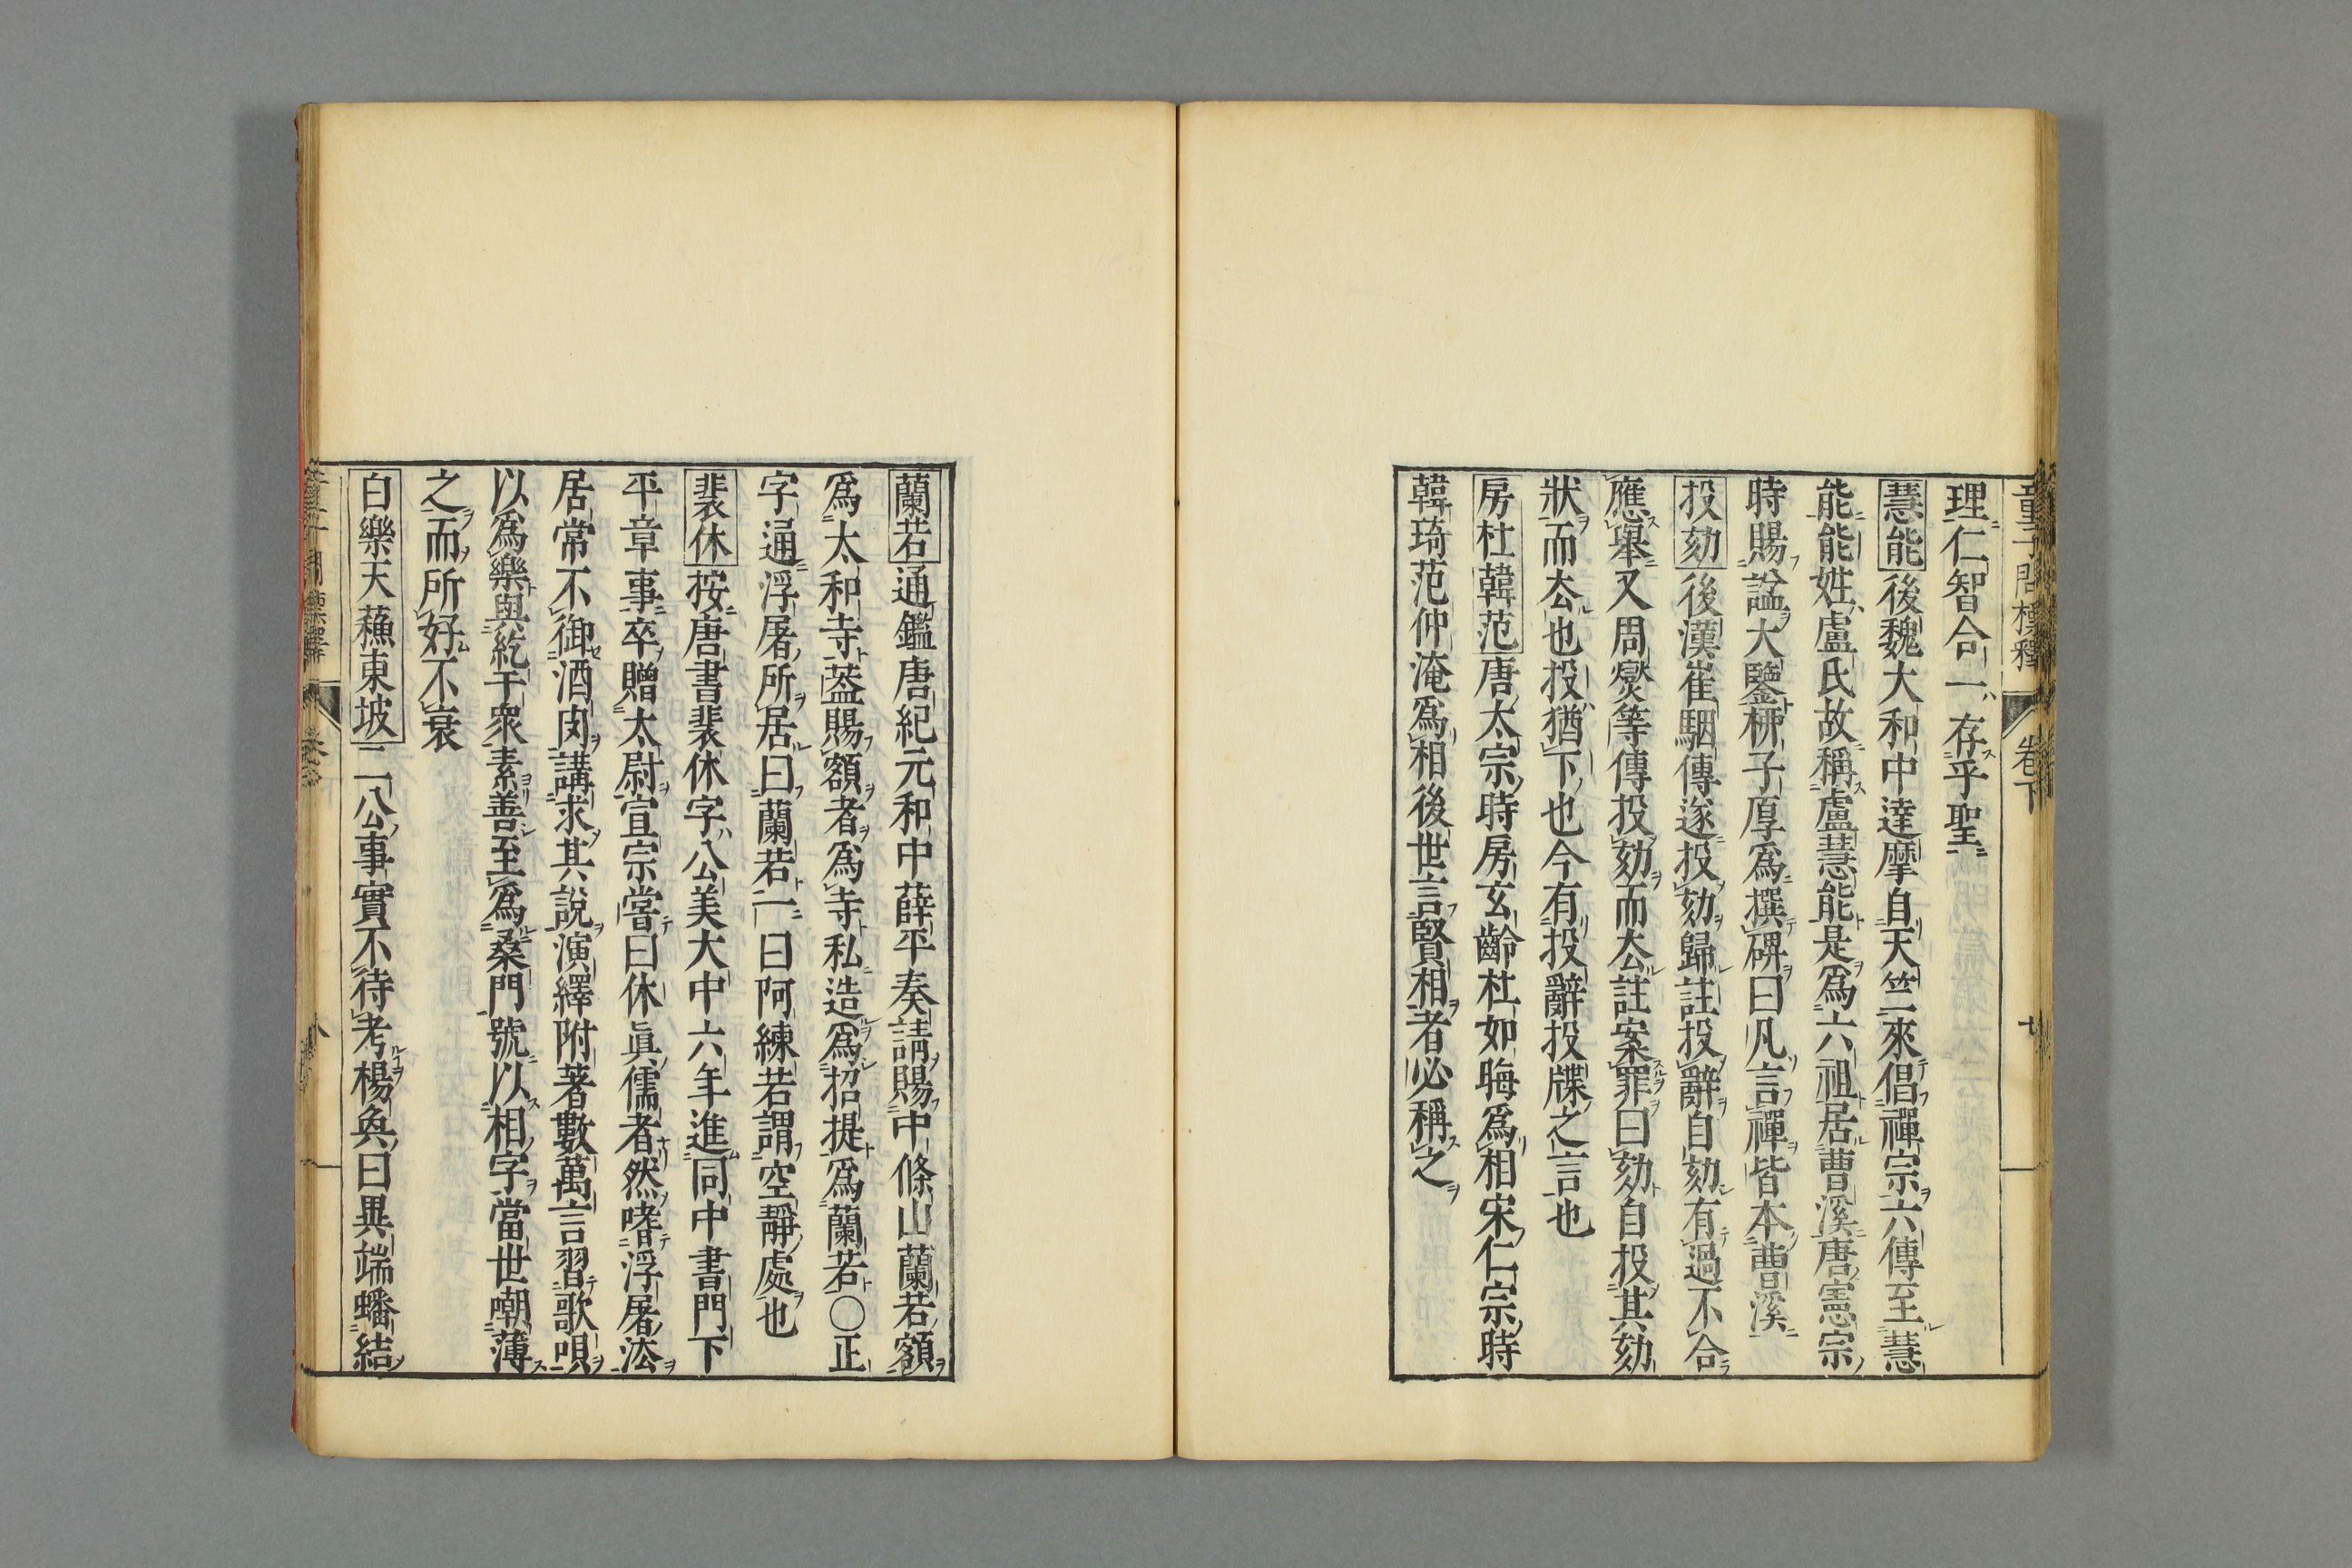 童子問標釋 卷下
理仁智合一存乎聖
慧能後魏大和中達摩自天竺來倡禪宗六傳至慧
能能姓盧氏故稱盧慧能是爲六祖居曹溪唐憲宗
時賜謚大鑒栁子厚爲撰碑曰凡言禪皆本曹溪
投劾後漢崔駰傳遂投劾歸註投辭自劾有過不合
應舉又周爕等傳投劾而厺註案罪曰劾自投其劾
狀而厺也投猶下也今有投辭投牒之言也
房杜韓范唐太宗時房玄齡杜如晦爲相宋仁宗時
韓琦范仲淹爲相後世言賢相者必稱之
蘭若通鑑唐紀元和中薛平奏請賜中條山蘭若額
爲太和寺葢賜額者爲寺私造爲招提爲蘭若○正
字通浮屠所居曰蘭若一曰阿練若謂空靜處也
裴休按唐書裴休字公美大中六年進同中書門下
平章事卒贈太尉宣宗嘗曰休眞儒者然嗜浮屠法
居常不御酒肉講求其說演繹附著數萬言習歌唄
以爲樂與紇干衆素善至爲桑門號以相字當世嘲薄
之而所好不衰
白樂天蘓東坡二公事實不待考楊奐曰異端蟠結